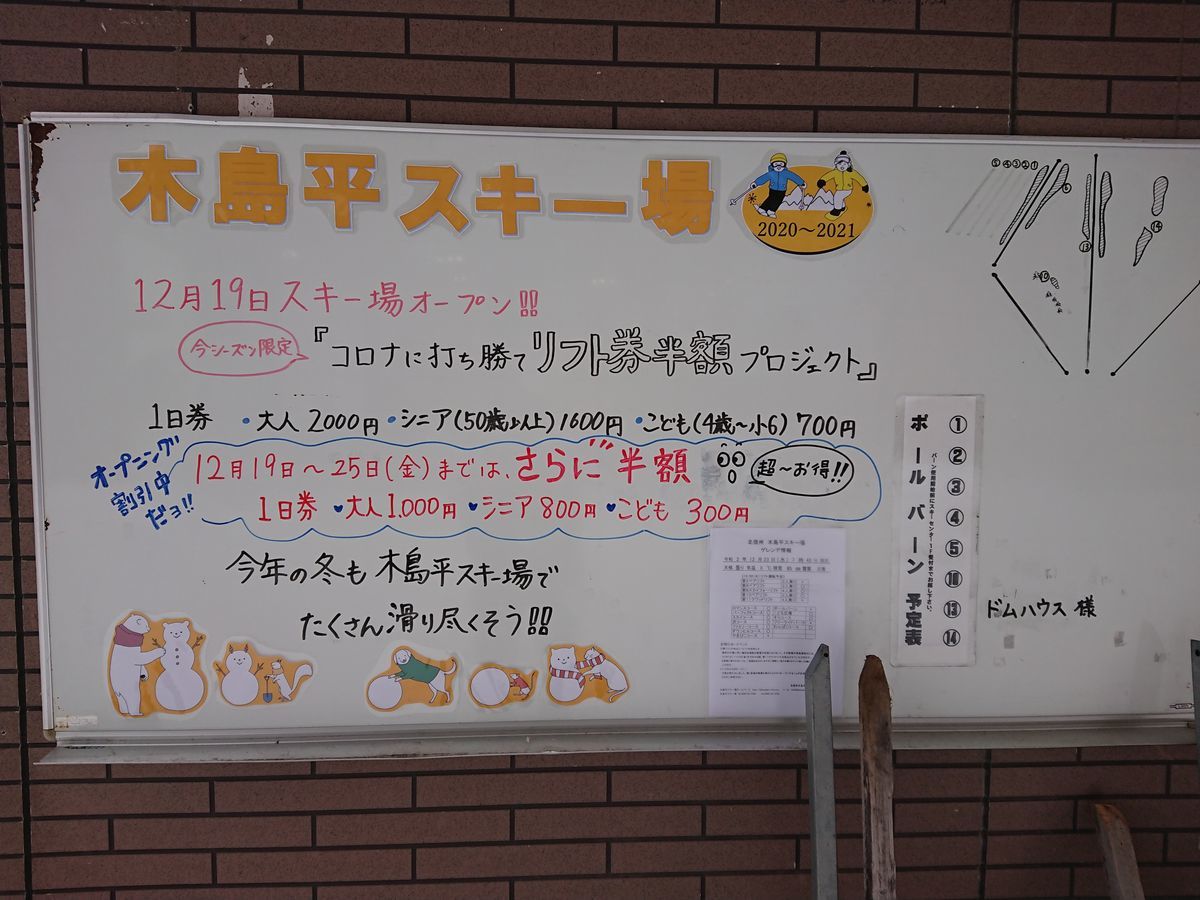 木島平スキー場
2020～2021
12月19日スキー場オープン!!
今シーズン限定
『コロナに打ち勝てリフト券半額プロジェクト』
1日券 ・大人2000円・シニア(50歳以上)1600円・こども(4歳～小6)700円
オープニング
割引中
だヨ!!
12月19日～25日(金)までは、さらに半額
超～お得!!
1日券 ♥大人1.000円♥シニア800円♥こども 300円
今年の冬も木島平スキー場で
たくさん滑り尽くそう!!
北信州 木島平スキー場
ゲレンデ情報
ポールバーン予定表
バーン使用開始前にスキーセンター1F受付までお越し下さい。
①
②
③
④
⑤
⑩
⑬
⑭
ドムハウス 様
⑤④③②①
⑥
⑩
⑬
⑭